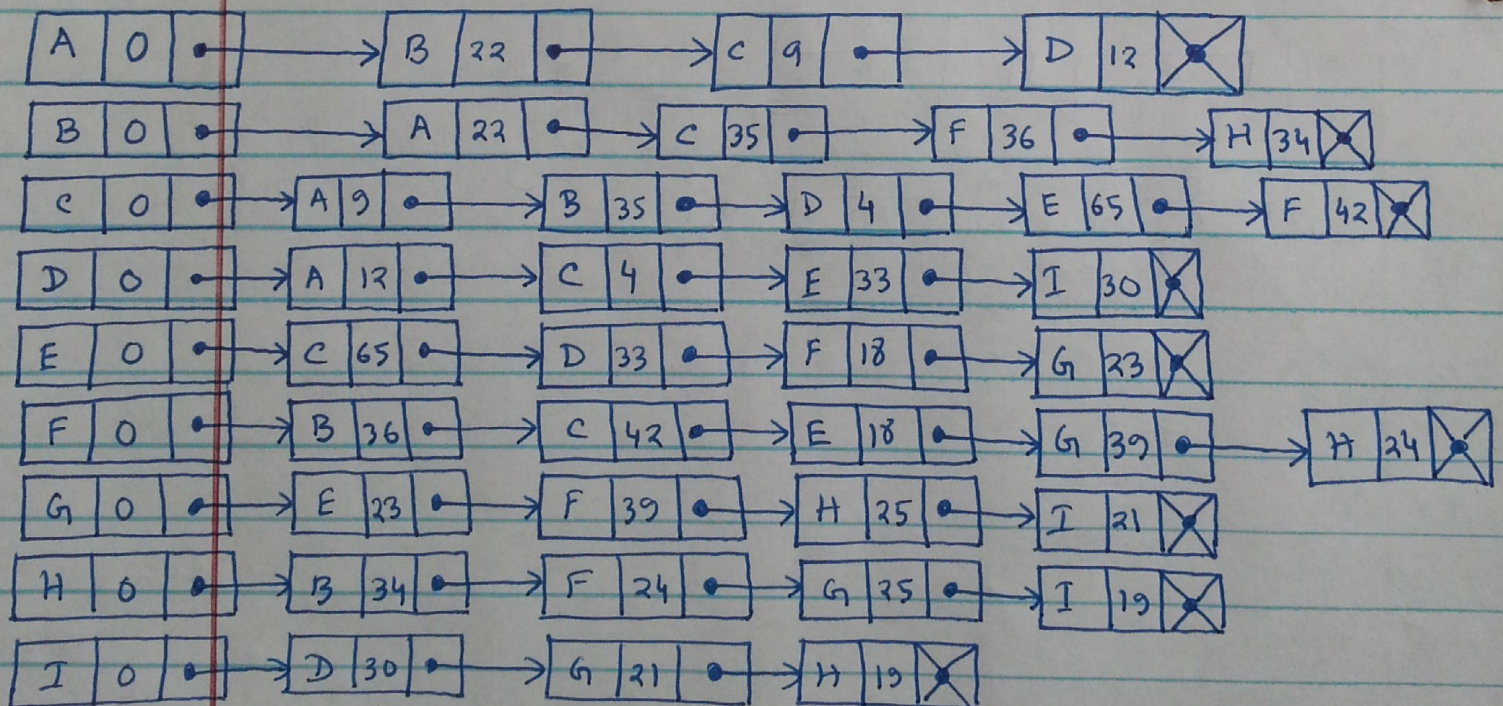 A 0 B 22 C 9 D 12
B 0 A 22 C 35 F 36 H 34
C 0 A 9 B 35 D 4 E 65 F 42
D 0 A 12 C 4 E 33 I 30
E 0 C 65 D 33 F 18 G 23
F 0 B 36 C 42 E 18 G 39 H 24
G 0 E 23 F 39 H 25 I 21
H 0 B 34 F 24 G 25 I 19
I 0 D 30 G 21 H 19